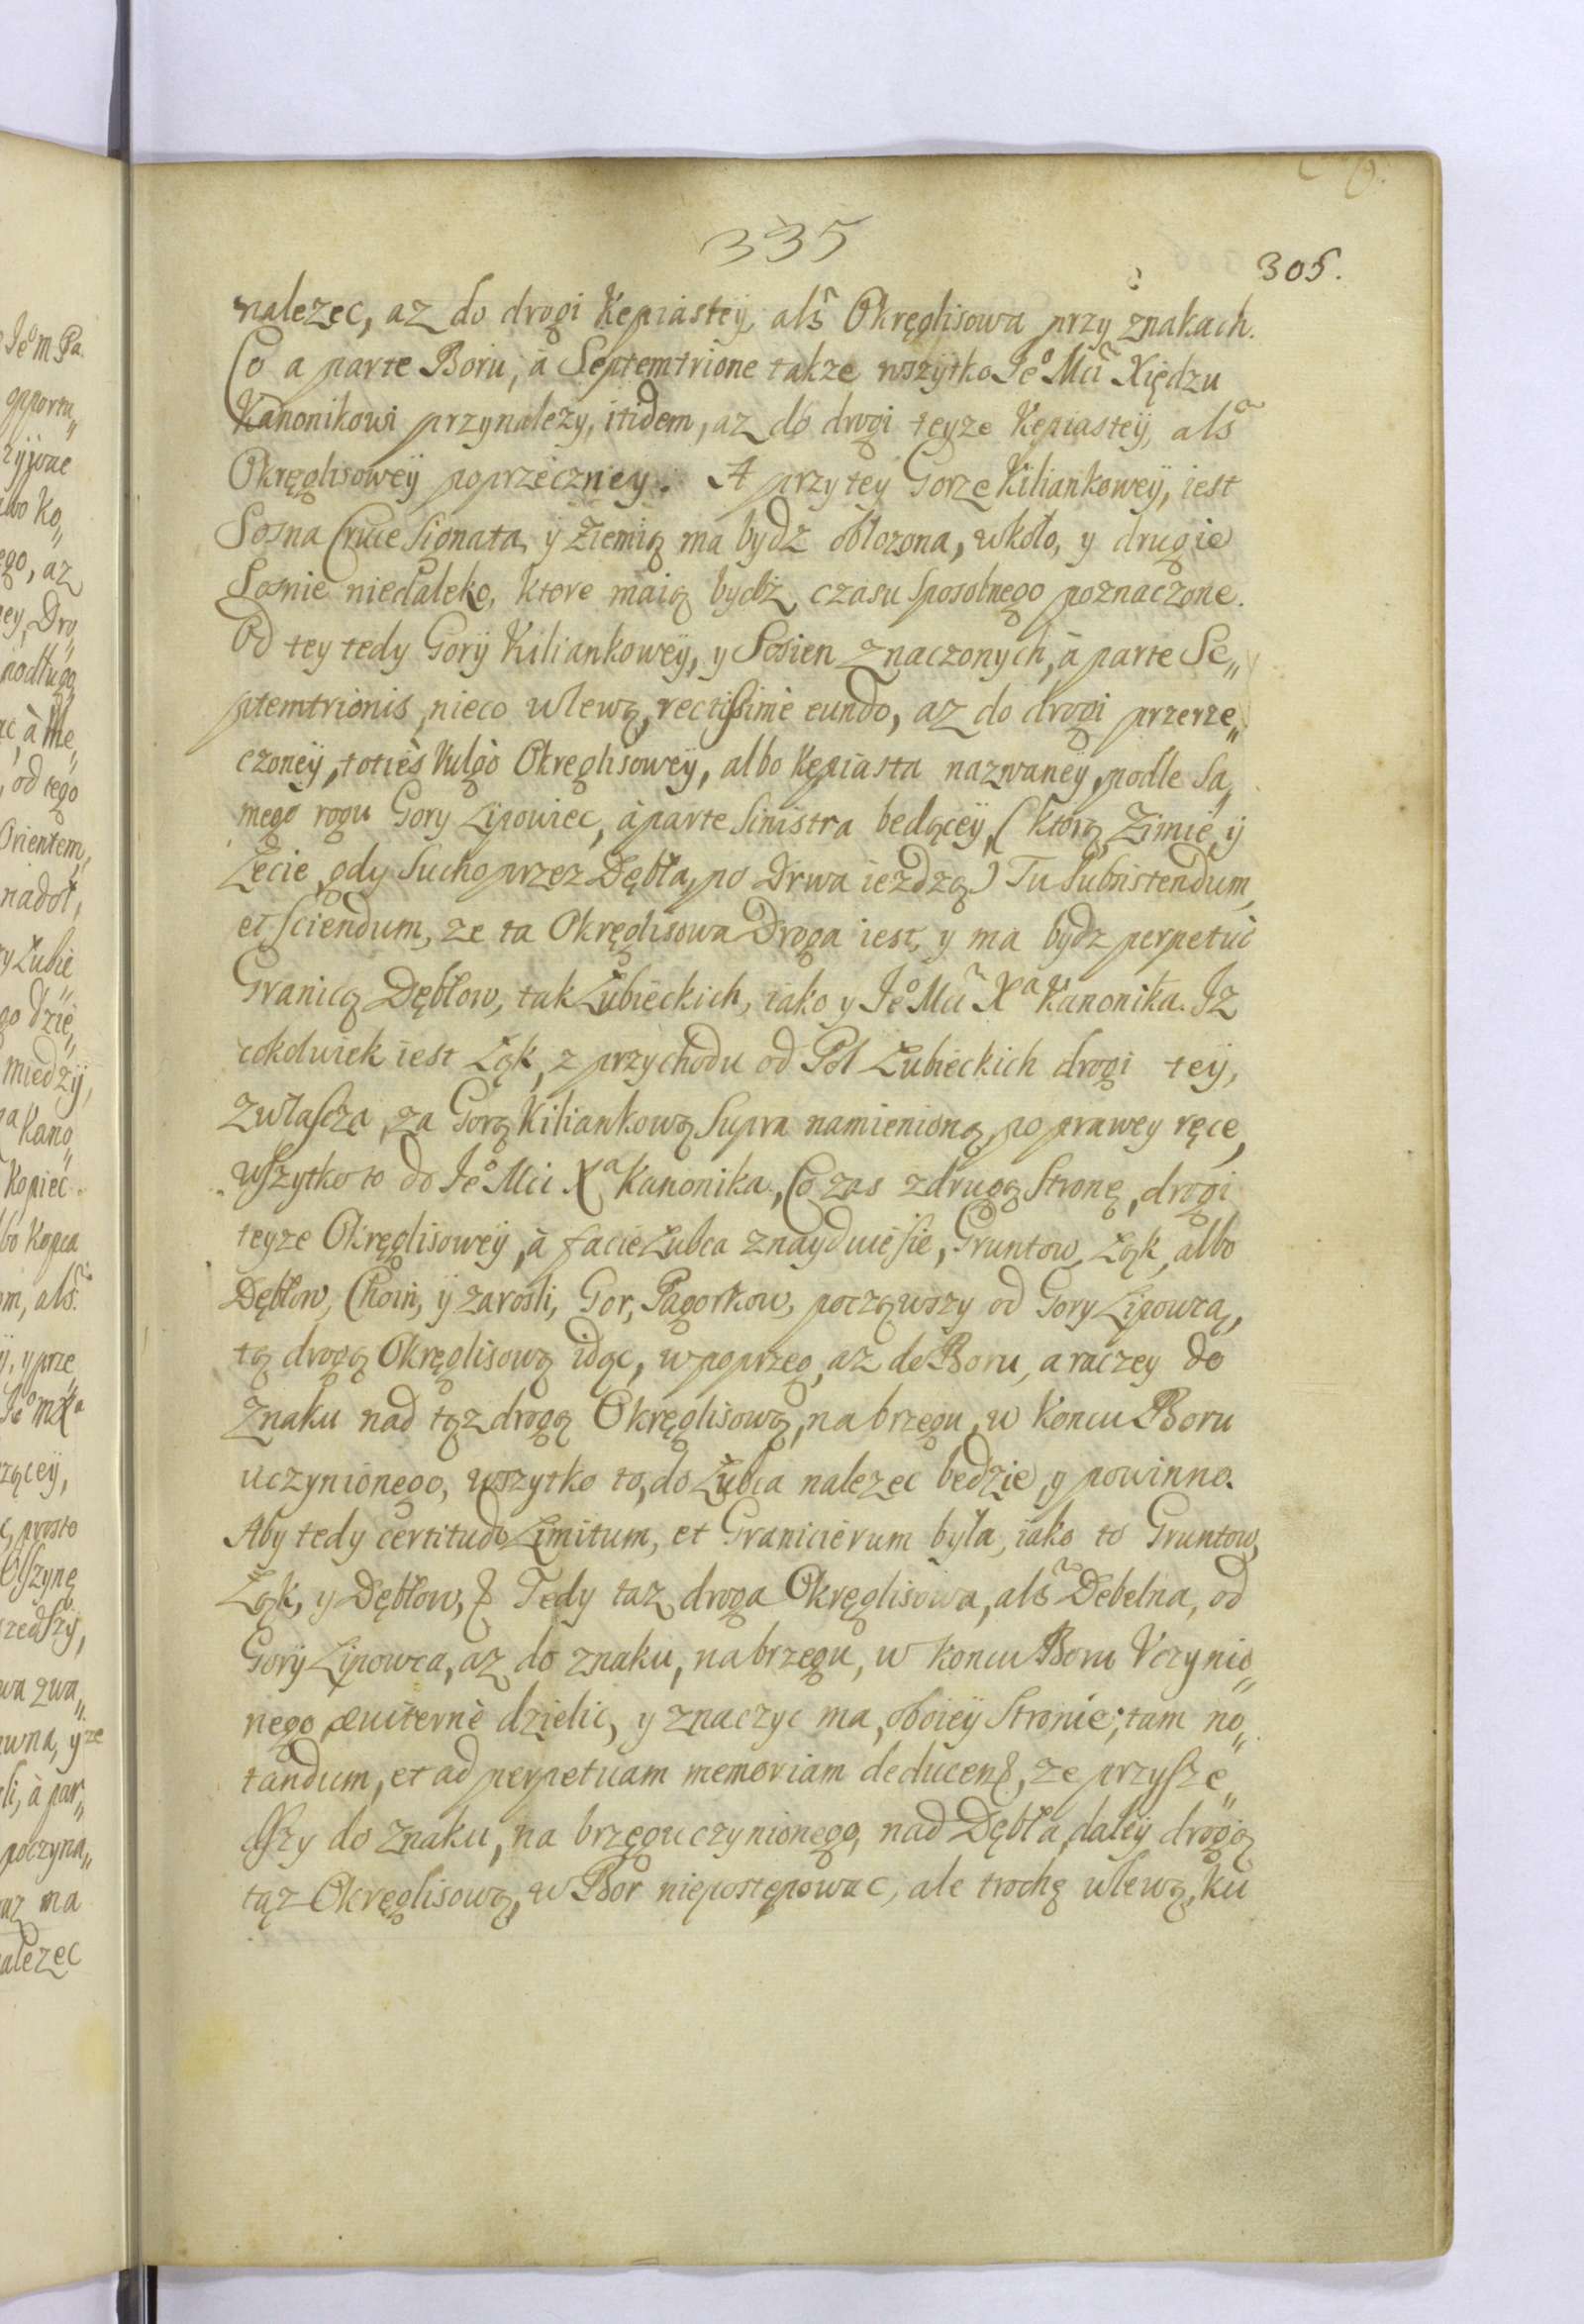 335
305.
nalezec, az do drogi Kępiastey, als Okręglisowa przy znakach.
Co a parte Boru, a Septemtrione takze wszytko Je° Mci Xiędzu
Kanonikowi przynalezy, itidem, az do drogi teyze Kępiasteÿ, als
Okręglisoweÿ poprzeczney. A przy tey Gorze Kiliankoweÿ, iest
Sosna Cruce Signata, ÿ Ziemią ma bydz oblozona, wkoło, y drugie
Sosnie niedaleko, ktore maią bydz, czasu sposobnego poznaczone.
Od tey tedy Gorÿ Kiliankoweÿ, y Sosien Znaczonych, à parte Se„
ptemtrionis, nieco wlewą, rectissime eundo, az do drogi przerze„
czoneÿ, toties Vulgò Okreglisoweÿ, albo Kępiasta nazwaneÿ, podle Sa„
mego rogu Gory Lipowiec, à parte Sinistra bedąceÿ, (ktorą Zimie, ÿ
Lecie, gdy Sucho przez Dębła, po Drwa iezdzą) Tu Subsistendum,
et sciendum, ze ta Okręglisowa Droga iest, y ma bydz perpetuè
Granicą Dębłow, tak Łubieckich, iako y Je° Mci Xa Kanonika. Iz
cokolwiek iest Łąk, z przychodu od Pol Łubieckich drogi teÿ,
zwłaszcza, za Gorą Kiliankową Supra namienioną, po prawey ręce,
wszytko to do Je° Mci Xa Kanonika, Co zas zdrugą Stronę, drogi
teyze Okręglisoweÿ, à facie Łubca znayduie sie, Gruntow, Łąk, albo
Dębłow, Choin, ÿ zarosli, Gor, Pagorkow, począwszy od Gory Lipowca,
tą drogą Okręglisową idąc, wpoprzeg, az do Boru, a raczey do
Znaku nad tąz drogą Okręglisową, na brzegu, w Koncu Boru
uczynionego, wszytko to, do Łubca nalezec bedzie, y powinno.
Aby tedy certitudo Limitum, et Granicierum była, iako to Gruntow,
Łąk, y Dębłow, & Tedy taz droga Okręglisowa, als Debelna, od
Gorÿ Lipowca, az do znaku, na brzegu, w koncu Boru Vczynio„
nego, æuiternè dzielic, y znaczyc ma, oboieÿ Stronie; tam no„
tandum, et ad perpetuam memoriam deducend, ze przysze„
dszy do Znaku, na brzegu czynionego, nad Dębła, daleÿ drogą
tąz Okręglisową, w Bor niepostępowac, ale trochę wlewą, ku